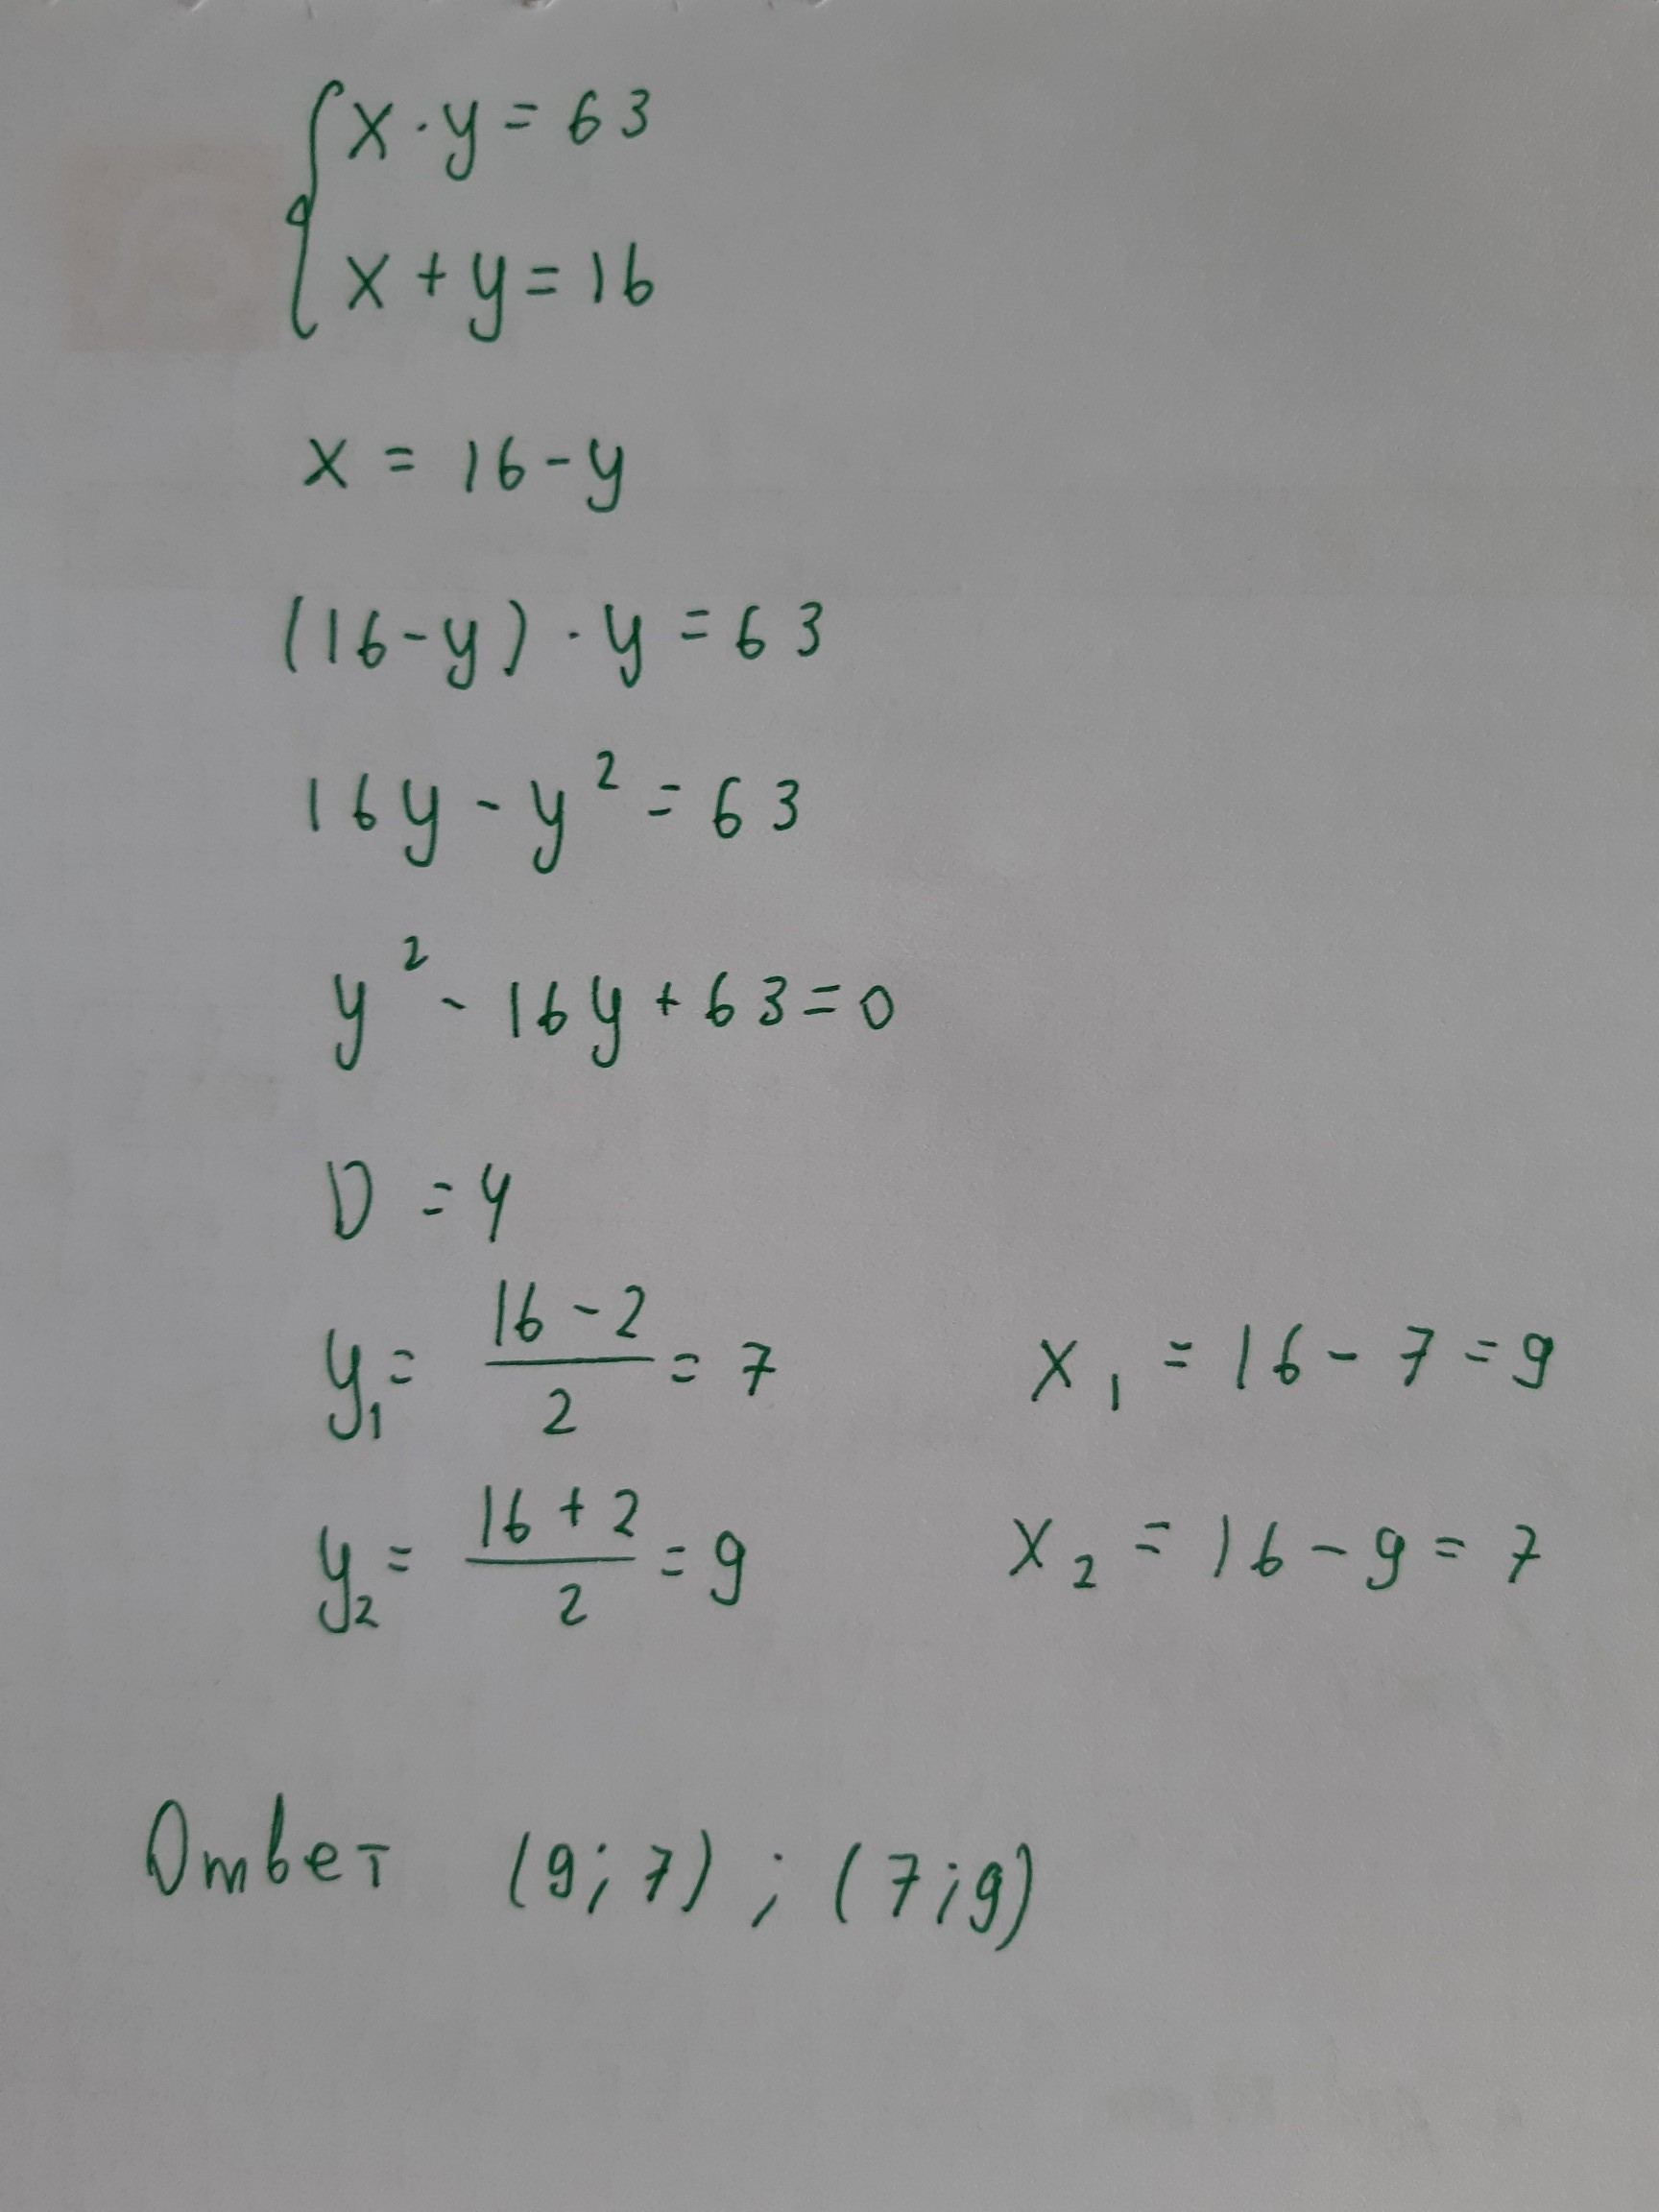 { x · y = 63
x + y = 16
x = 16 - y
(16 - y) · y = 63
16y - y² = 63
y² - 16y + 63 = 0
D = 4
y₁ = (16 - 2)/2 = 7    x₁ = 16 - 7 = 9
y₂ = (16 + 2)/2 = 9    x₂ = 16 - 9 = 7
Ответ (9; 7) ; (7; 9)